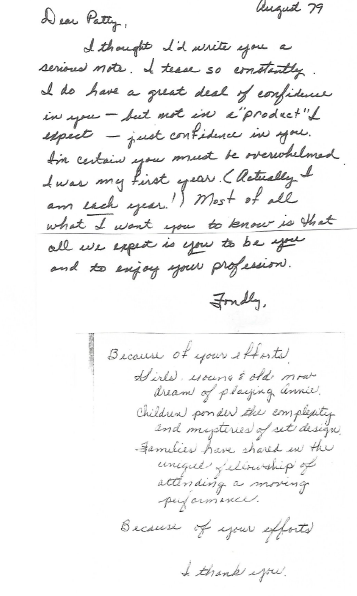 August 79
Dear Patty,
I thought I'd write you a
serious note. I tease so constantly.
I do have a great deal of confidence
in you — but not in a "product" I
expect — just confidence in you.
I'm certain you must be overwhelmed
I was my first year. (Actually I
am each year!) Most of all
what I want you to know is that
all we expect is you to be you
and to enjoy your profession.
Fondly,
Because of your efforts
Girls young & old now
dream of playing Annie.
Children ponder the complexity
and mysteries of set design.
Families have shared in the
unique fellowship of
attending a moving
performance.
Because of your efforts
I thank you.